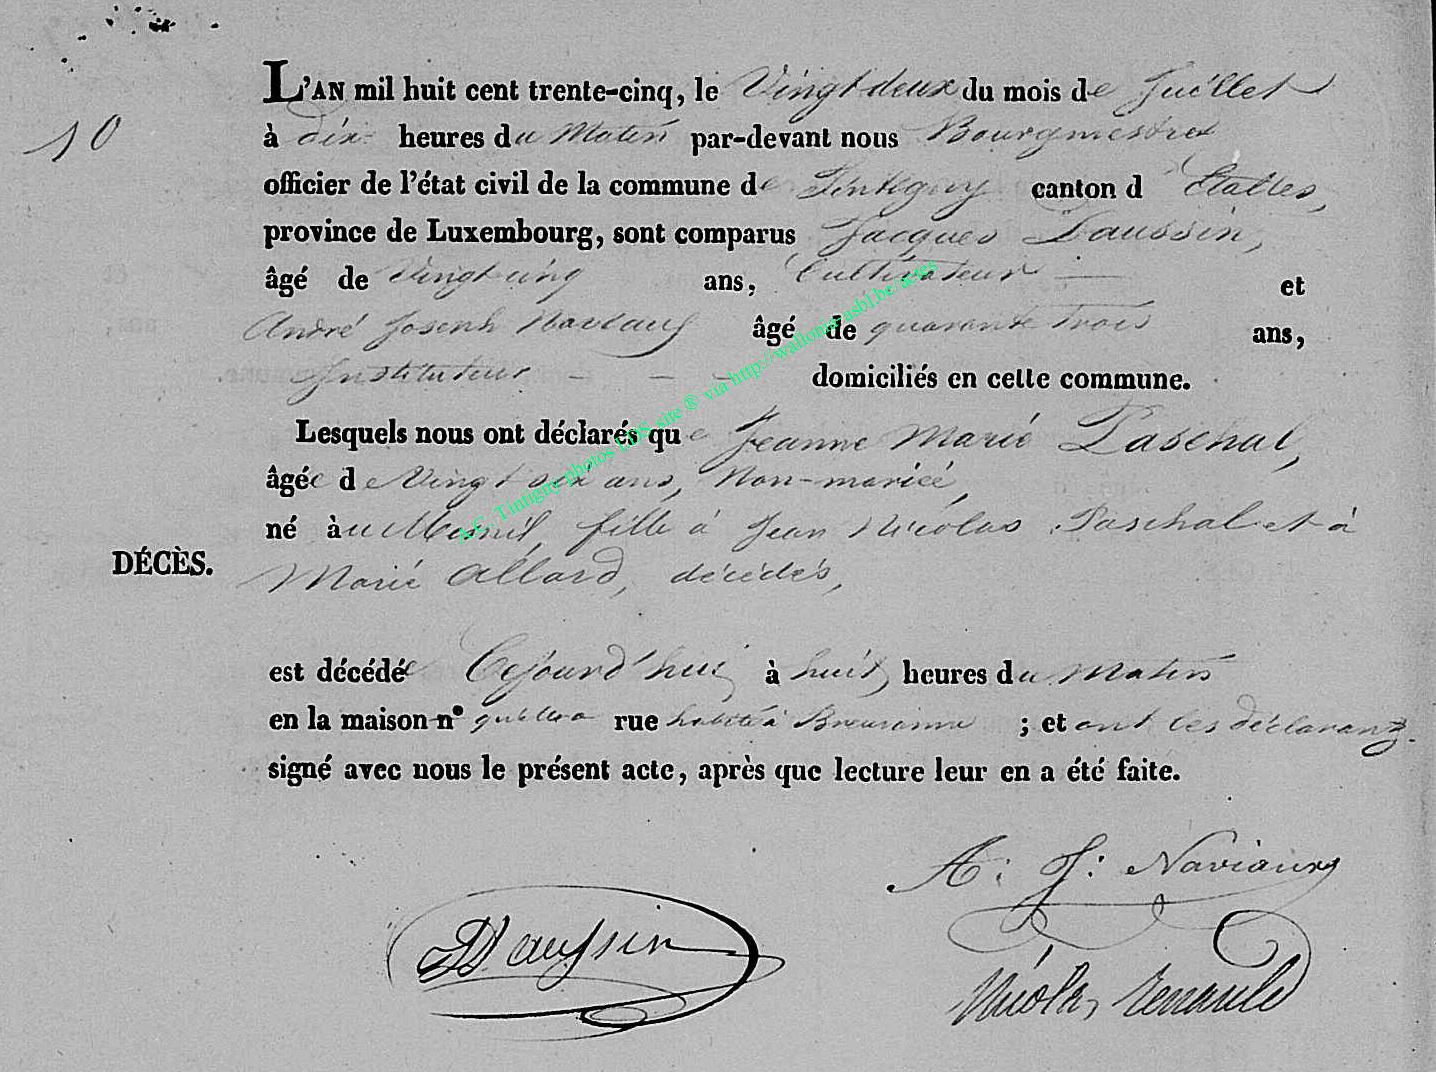 L'AN mil huit cent trente-cinq, le Vingt deux du mois de Juillet
10
à dix heures du Matin par-devant nous Bourgmestre
officier de l'état civil de la commune de Tintigny canton d'Etalles,
province de Luxembourg, sont comparus Jacques Daussin,
âgé de Vingt cinq ans, Cultivateur — et
André Joseph Naviaux âgé de quarante trois ans,
Instituteur - - - domiciliés en cette commune.
Lesquels nous ont déclarés que Jeanne Marie Paschal,
âgée de Vingt six ans, Non-mariée,
né à au Mesnil, fille à Jean Nicolas Paschal et à
DÉCÈS.
Marie Allard, décédés,
est décédée Cejourd'hui à huit heures du Matin
en la maison n° qu'elle a rue habité à Breuvanne ; et ont les déclarans
signé avec nous le présent acte, après que lecture leur en a été faite.
A: J: Naviaux
JDaussin
Nicolas Renauld
A.C. Tintigny photos LDS site ® via http://wallonia-asbl.be/actes